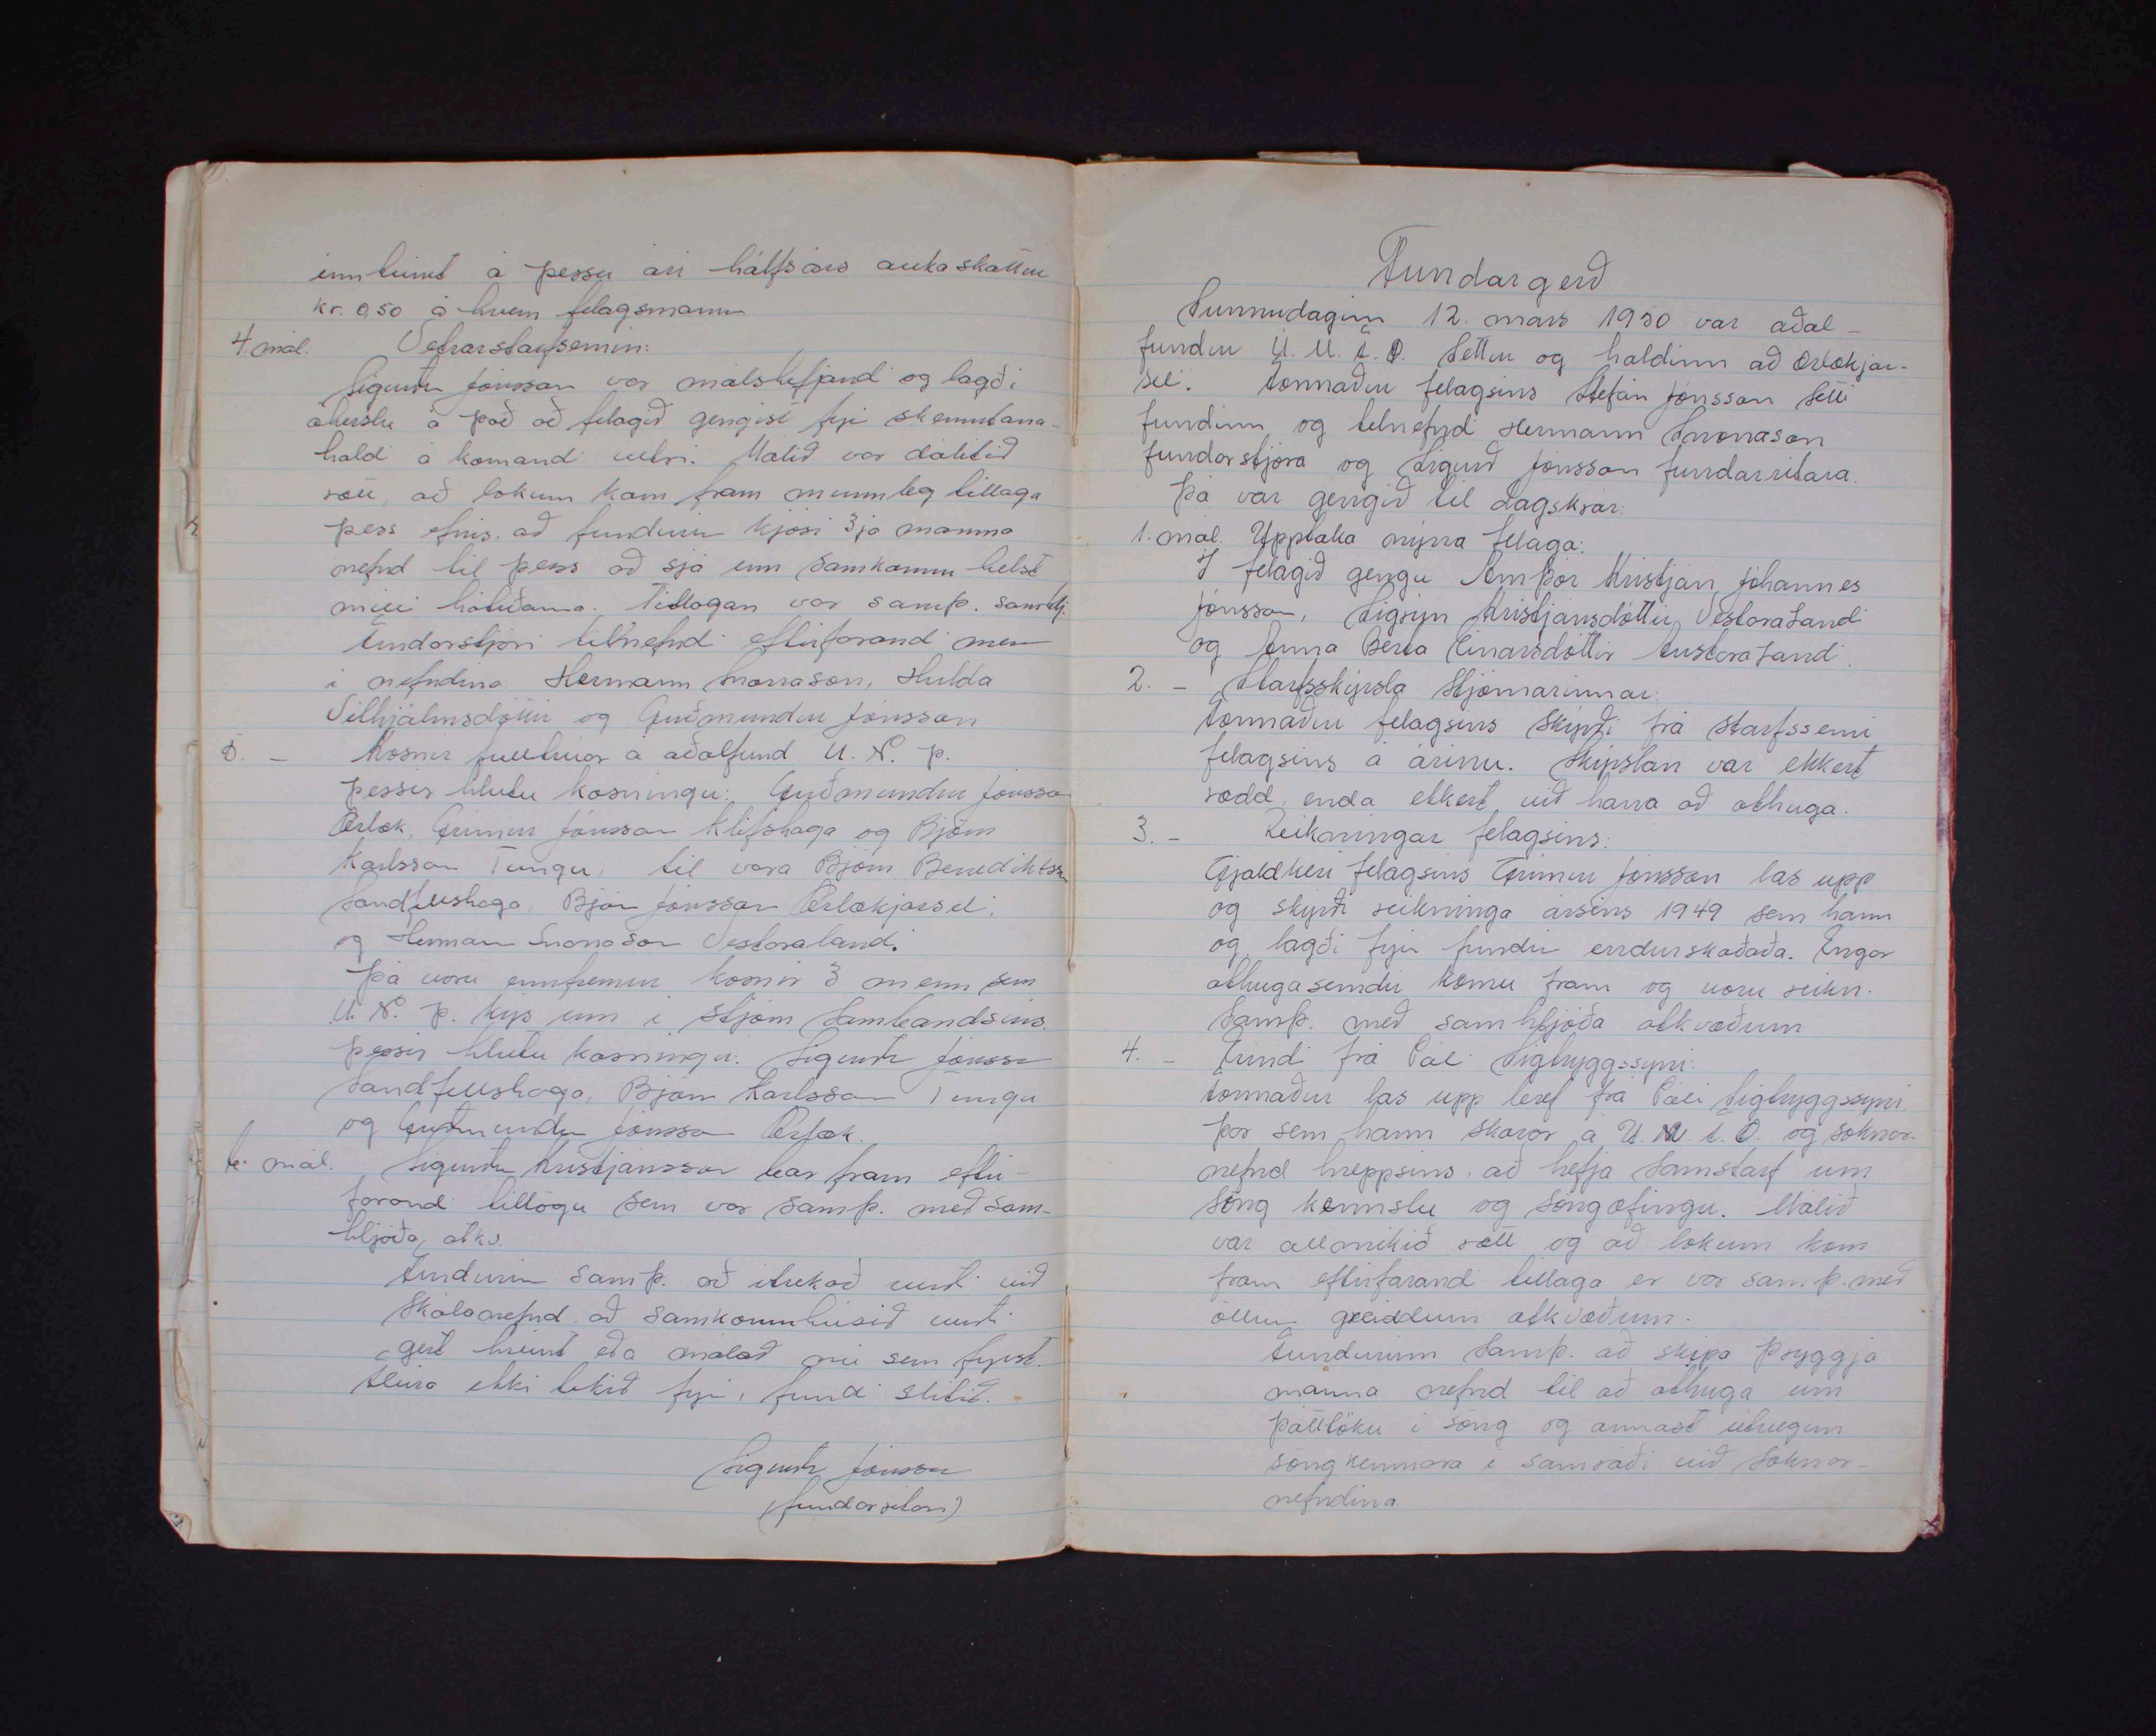 innheimt á þessu ári hálfsárs aukaskattur
kr. 0,50 á hvern félagsmann
4. mál. Vetrarstarfsemin:
Sigurður Jónsson var málshefjandi og lagði
áherslu á það að félagið gengist fyri skemmtana-
haldi á komandi vetri. Málið var dálítið
rætt, að lokum kom fram munnleg tillaga
þess efnis, að fundurin kjósi 3ja manna
nefnd til þess að sjá um samkomu helst
milli hátíðanna. Tillagan var samþ. samhlj.
Fundarstjóri tilnefndi eftirfarandi menn
í nefndina Hermann Snorrason, Hulda
Vilhjálmsdóttir og Guðmundur Jónsson
5. – Kosnir fulltrúar á aðalfund U. N. Þ.
þessir hlutu kosningu: Guðmundur Jónsson
Ærlæk, Grímur Jónsson Klifshaga og Björn
Karlsson Tungu, til vara Björn Benediktsson
Sandfellshaga, Björn Jónsson Ærlækjarseli,
og Herman Snorrason Vestaralandi.
Þá voru ennfremur kosnir 3 menn sem
U. N. Þ. kýs um í stjórn Sambandsins.
þessir hlutu kosningu: Sigurður Jónsson
Sandfellshaga, Björn Karlsson Tungu
og Guðmundur Jónsson Ærlæk.
6. mál. Sigurður Kristjánsson bar fram eftir-
farandi tillögu sem var samþ. með sam-
hljóða atkv.
Fundurin samþ. að ítrekað verði við
skálanefnd, að samkomuhúsið verði
gert hreint eða málað nú sem fyrst.
Fleira ekki tekið fyri, fundi slitið.
Sigurður Jónsson
(fundarritari)
Fundargerð
Sunnudaginn 12. mars 1950 var aðal-
fundur U. M. F. Ö. settur og haldinn að Ærlækjar-
seli. Formaður félagsins Stefán Jónsson setti
fundinn og tilnefndi Hermann Snorrason
fundarstjóra og Sigurð Jónsson fundarritara.
Þá var gengið til dagskrár:
1. mál. Upptaka nýrra félaga:
Í félagið gengu Arnþór Kristján Jóhannes
Jónsson, Sigrún Kristjánsdóttir, Vestaralandi
og Anna Berta Einarsdóttir Austaralandi.
2. – Starfsskýrsla stjórnarinnar:
Formaður félagsins skýrði frá starfssemi
félagsins á árinu. Skýrslan var ekkert
rædd, enda ekkert við hana að athuga.
3. – Reikningar félagsins:
Gjaldkeri félagsins Grímur Jónsson las upp
og skýrði reikninga ársins 1949 sem hann
og lagði fyrir fundin endurskoðaða. Engar
athugasemdir komu fram og voru reikn.
samþ. með samhljóða atkvæðum
4. – Erindi frá Páli Sigtryggssyni:
Formaður las upp bréf frá Páli Sigtryggssyni
þar sem hann skorar á U. M. F. Ö. og sóknar-
nefnd hreppsins, að hefja samstarf um
söng kennslu og söngæfingu. Málið
var allmikið rætt og að lokum kom
fram eftirfarandi tillaga er var samþ. með
öllum greiddum atkvæðum.
Fundurinn samþ. að skipa þryggja
manna nefnd til að athuga um
þátttöku í söng og annast útvegun
söngkennara í samráði við sóknar-
nefndina